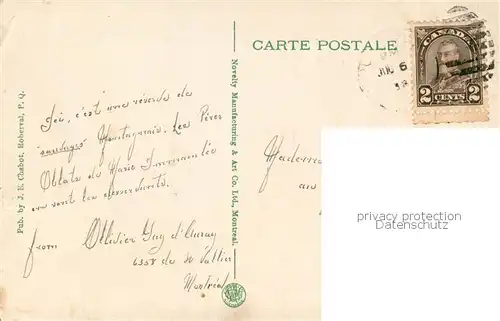 CARTE POSTALE
CANADA
2 CENTS 2
6
Pub. by J. E. Chabot, Roberval, P. Q.
Novelty Manufacturing & Art Co. Ltd., Montreal.
Ici, c'est une réserve de
sauvages Montagnais. Les Pères
Oblats de Marie Immaculée
en sont les desservants.
from Ollivier Guy d'Auray
6358 de St Vallier
Montréal
au
privacy protection
Datenschutz